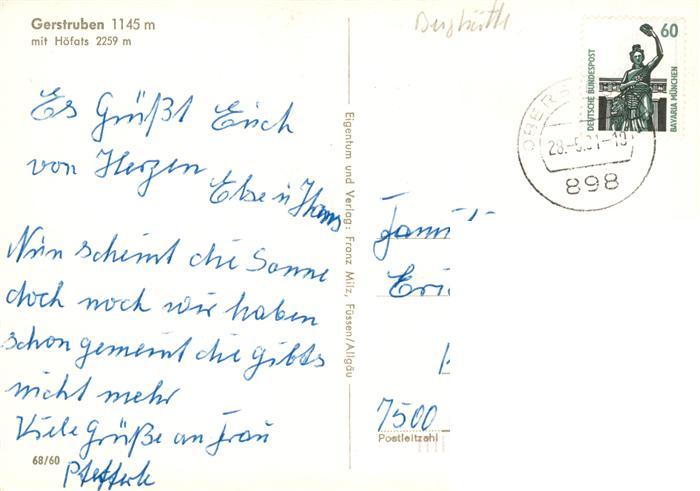 Gerstruben 1145 m
mit Höfats 2259 m
Es Grüßt Euch
von Herzen
Else u Hans
Nun scheint die Sonne
doch noch wir haben
schon gemeint die gibts
nicht mehr
Viele Grüße an Frau
68/60
Eigentum und Verlag: Franz Milz, Füssen/Allgäu
60
DEUTSCHE BUNDESPOST
BAVARIA MÜNCHEN
898
7500
Postleitzahl